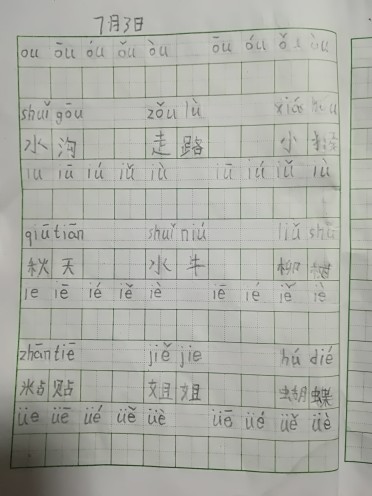 7月3日
ou ōu óu ǒu òu ōu óu ǒu òu
shuǐ gōu zǒu lù xiǎo hóu
水 沟 走 路 小 猴
iu iū iú iǔ iù iū iú iǔ iù
qiūtiān shuǐ niú liǔ shù
秋 天 水 牛 柳 树
ie iē ié iě iè iē ié iě iè
zhāntiē jiě jie hú dié
粘贴 姐姐 蝴蝶
üe üē üé üě üè üē üé üě üè